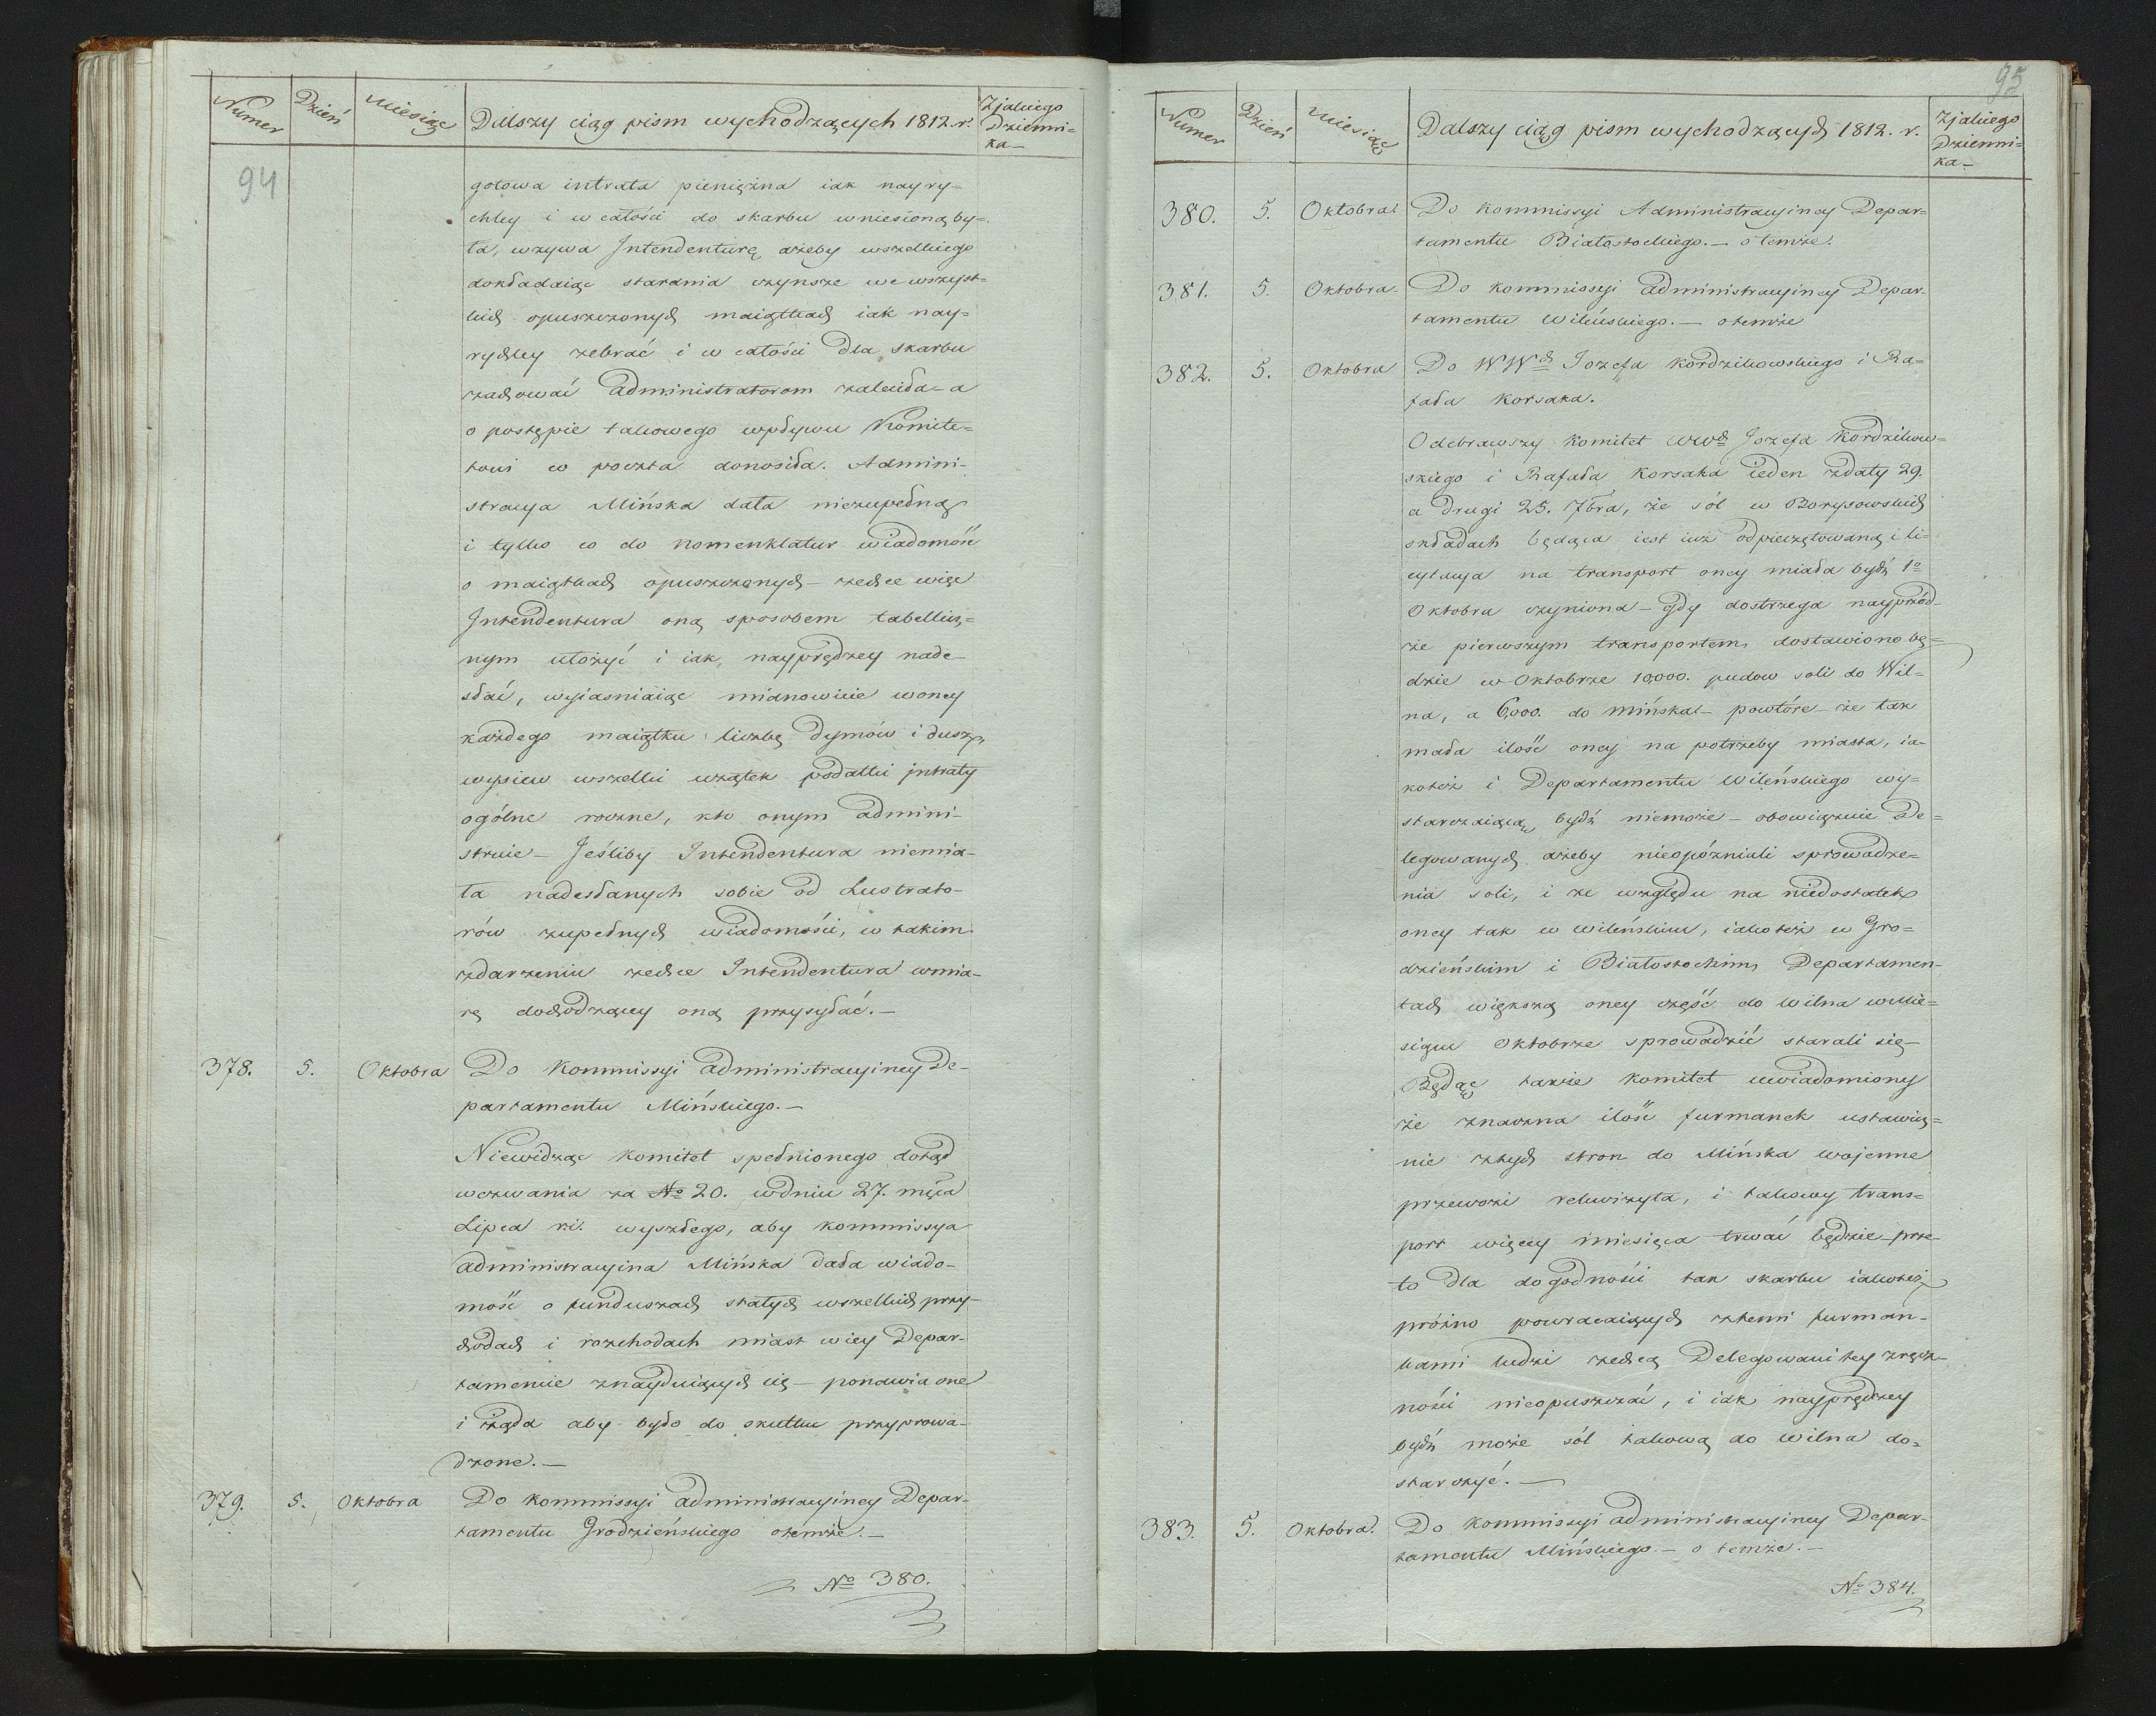 Numer
Dzień
Miesiąc
Dalszy ciąg pism wychodzących 1812. r.
Zjakiego
Dzienni=
ka—
94
gotowa intrata pieniężna iak nayry=
chley i w całości do skarbu wniesioną by=
ła, wzywa Intendenturę ażeby wszelkiego
dokładaiąc starania czynsze we wszyst=
kich opuszczonych maiątkach iak nay=
rychley zebrać i w całości dla skarbu
zachować administratorom zaleciła – a
o postępie takowego wpływu Komite=
towi co poczta donosiła. Admini-
stracya Mińska dała niezupełną
i tylko co do nomenklatur wiadomość
o maiątkach opuszczonych – zechce więc
Intendentura oną sposobem tabellicz=
nym ułożyć i iak nayprędzey nade-
słać, wyiasniaiąc mianowicie woney
każdego maiątku liczbę dymów i dusz,
wysiew wszelki wziątek podatki intraty
ogólne roczne, kto onym admini-
struie – Jeśliby Intendentura niemia-
ła nadesłanych sobie od Lustrato-
rów zupełnych wiadomości, w takim
zdarzeniu zechce Intendentura wmia-
rę dochodzącey oną przysyłać. —
378. 5. Oktobra Do Kommissyi administracyiney De-
partamentu Mińskiego. —
Niewidząc Komitet spełnionego dotąd
wezwania za No 20. wdniu 27. mca
Lipca r.b. wyszłego, aby kommissya
administracyina Mińska dała wiado-
mość o funduszach stałych wszelkich przy-
chodach i rozchodach miast w tey Depar-
tamencie znayduiących się – ponawia one
i żąda aby było do skutku przyprowa-
dzone. —
379. 5. Oktobra Do kommissyi administracyiney Depar-
tamentu Grodzieńskiego otemże. —
No 380.
95
Numer
Dzień
Miesiąc
Dalszy ciąg pism wychodzących 1812. r.
Zjakiego
Dzienni=
ka—
380. 5. Oktobra. Do Kommissyi Administracyiney Depar=
tamentu Białostockiego. — o temże.
381. 5. Oktobra. Do kommissyi administracyiney Depar-
tamentu Wileńskiego. — otemże
382. 5. Oktobra Do WWch Jozefa Kordzikowskiego i Ra=
fała Korsaka.
Odebrawszy Komitet WWch Jozefa Kordzikow=
skiego i Rafała Korsaka ieden zdaty 29.
a drugi 25. 7bra, że sól w Borysowskich
składach będąca iest iuż odpieczętowaną i li=
cytacya na transport oney miała bydź 1o
Oktobra czyniona – gdy dostrzega nayprzód-
że pierwszym transportem dostawiono bę=
dzie w Oktobrze 10,000. pudow soli do Wil=
na, a 6,000. do mińska – powtóre – że tak
mała ilość oney na potrzeby miasta, ia-
koteż i Departamentu Wileńskiego wy=
starczaiącą bydź niemoże – obowiązuie De=
legowanych ażeby nieopóźniali sprowadze=
nia soli, i ze względu na niedostatek
oney tak w wileńskim, iakoteż w Gro=
dzieńskim i Białostockim Departamen-
tach większą oney część do Wilna w mie=
siącu Oktobrze sprowadzić starali się –
Będąc także Komitet uwiadomiony
że znaczna ilość furmanek ustawicz=
nie ztych stron do Mińska wojenne
przewozi rekwizyta, i takowy trans=
port więcey miesięca trwać będzie – prze-
to dla dogodności tak skarbu iakoteż
próżno powracaiących ztemi furman-
kami ludzi zechcą Delegowani tey zręcz-
ności nieopuszczać, i iak nayprędzey
bydź może sól takową do Wilna do=
starczyć. —
383. 5. Oktobra. Do Kommissyi administracyiney Depar-
tamentu Mińskiego. — o temże. —
No 384.